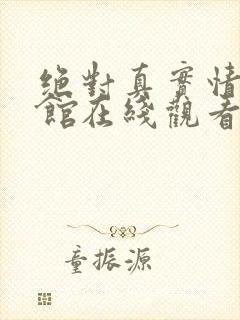 絕對真實情
館在綫觀看
童振源